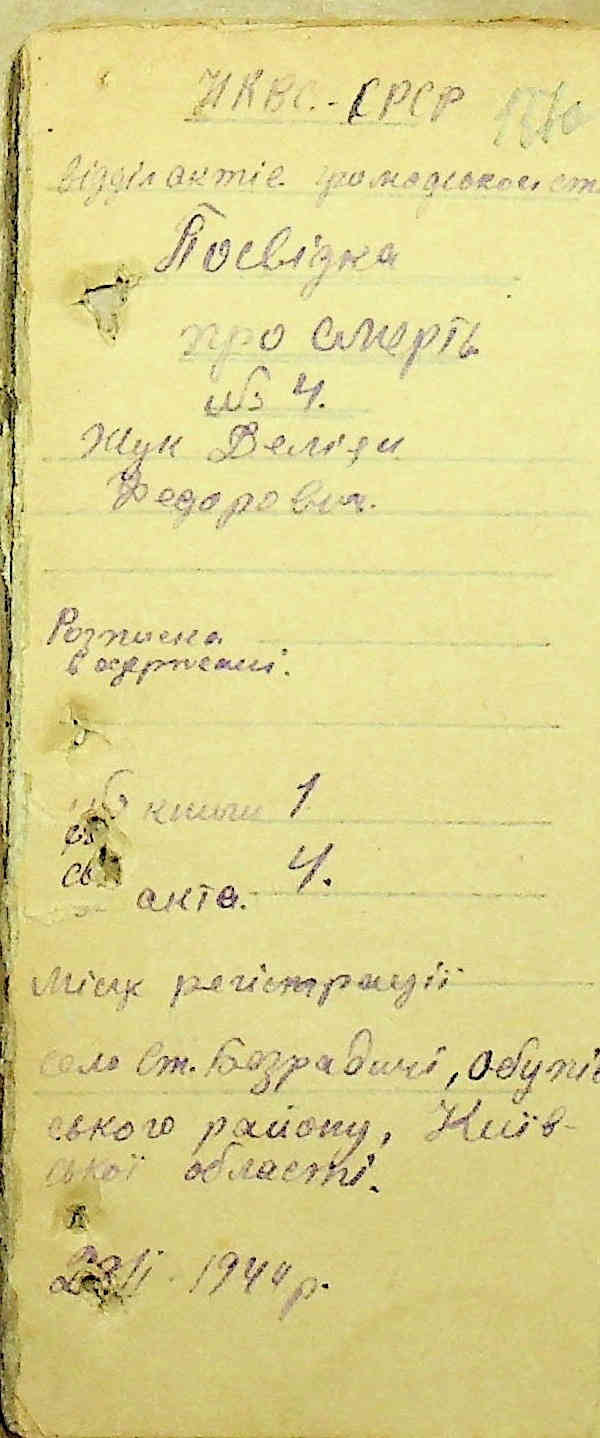 НКВС - СРСР
відділ актів громадського ст
Посвідка
про смерть
№ 4.
Жук
Федорович.
Розписка
в одержані.
№ книги 1
акта. 4.
Місце регістрації
село Ст. Безрадичі, Обухів
ського району, Київ-
ської області.
1944 р.